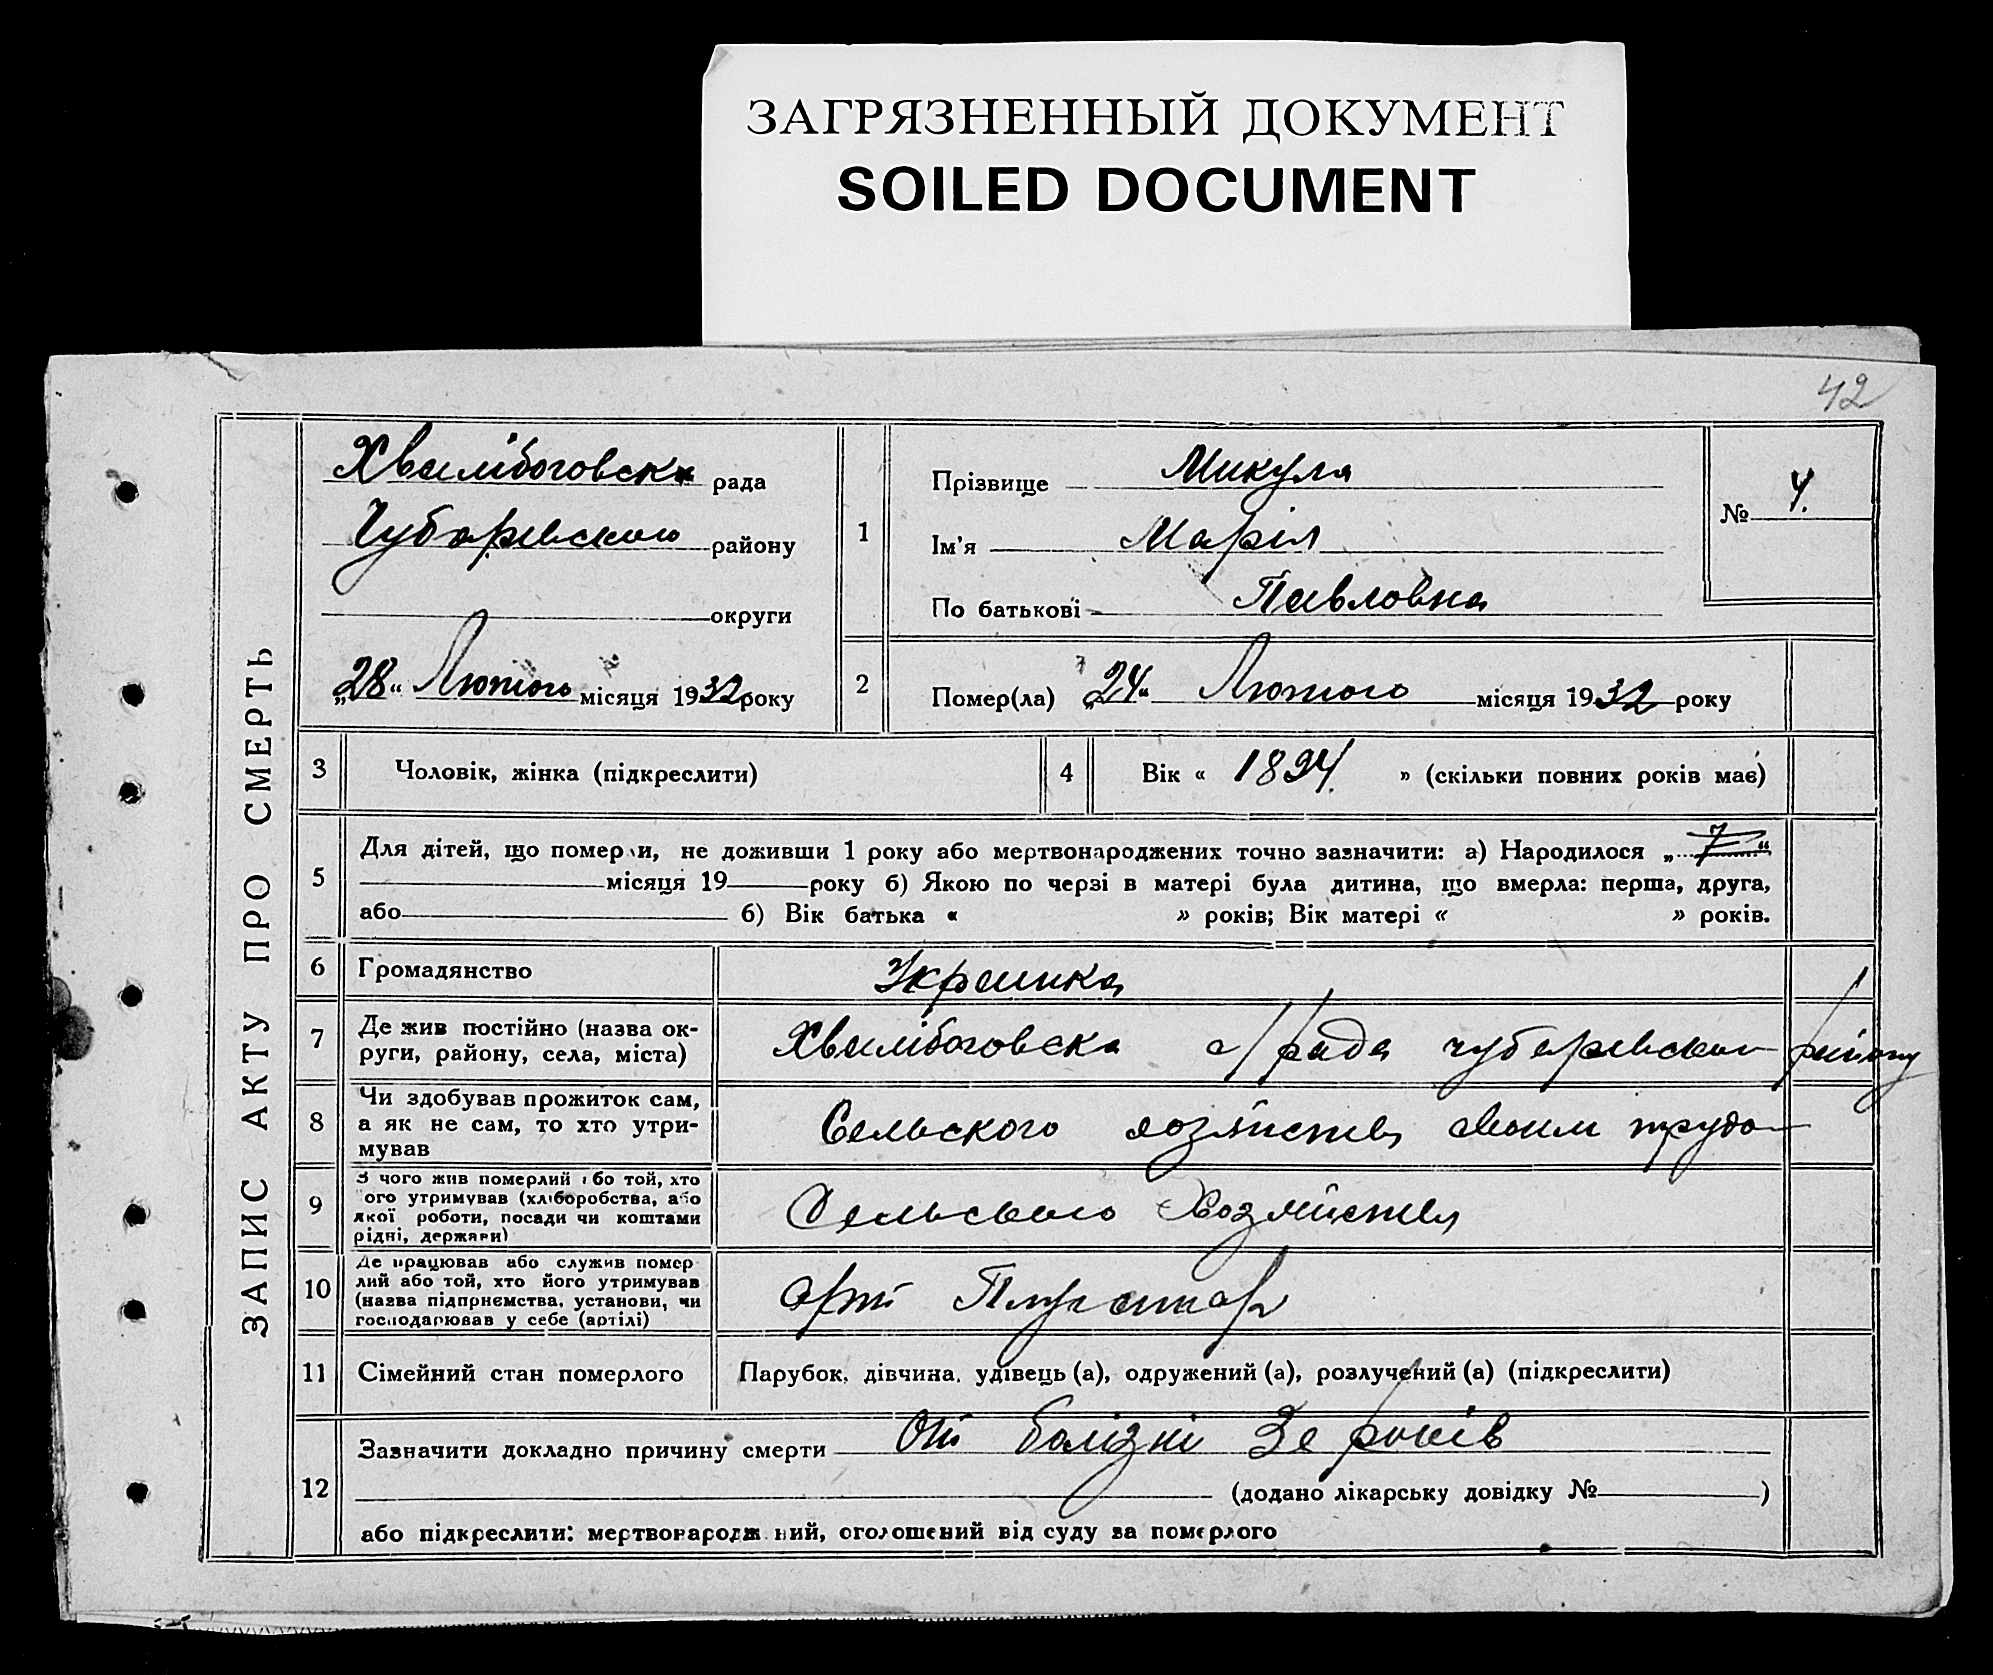 ЗАГРЯЗНЕННЫЙ ДОКУМЕНТ
SOILED DOCUMENT
42
ЗАПИС АКТУ ПРО СМЕРТЬ
Хвалібоговска рада
Чубаревского району
округи
„28“ Лютого місяця 1932 року
1
Прізвище Микуля
Ім'я Марія
По батькові Павловна
№ 4.
2
Помер(ла) „24“ Лютого місяця 1932 року
3 Чоловік, жінка (підкреслити)
4 Вік « 1894. » (скільки повних років має)
5
Для дітей, що померли, не доживши 1 року або мертвонароджених точно зазначити: а) Народилося „ “
місяця 19 року б) Якою по черзі в матері була дитина, що вмерла: перша, друга,
або б) Вік батька « » років; Вік матері « » років.
6 Громадянство Украинка
7 Де жив постійно (назва ок-
руги, району, села, міста)
Хвалібоговска с/рада чубаревского району
8 Чи здобував прожиток сам,
а як не сам, то хто утри-
мував
Сельского хозяйства своим трудо
9 З чого жив померлий або той, хто
ого утримував (хліборобства, або
якої роботи, посади чи коштами
рідні, держави)
Сельского Хозяйства
10 Де працював або служив помер
лий або той, хто його утримував
(назва підприємства, установи, чи
господарював у себе (артілі)
арт
11 Сімейний стан померлого Парубок, дівчина, удівець (а), одружений (а), розлучений (а) (підкреслити)
12
Зазначити докладно причину смерти От болізні років
(додано лікарську довідку № )
або підкреслити: мертвонародж ний, оголошений від суду за померлого